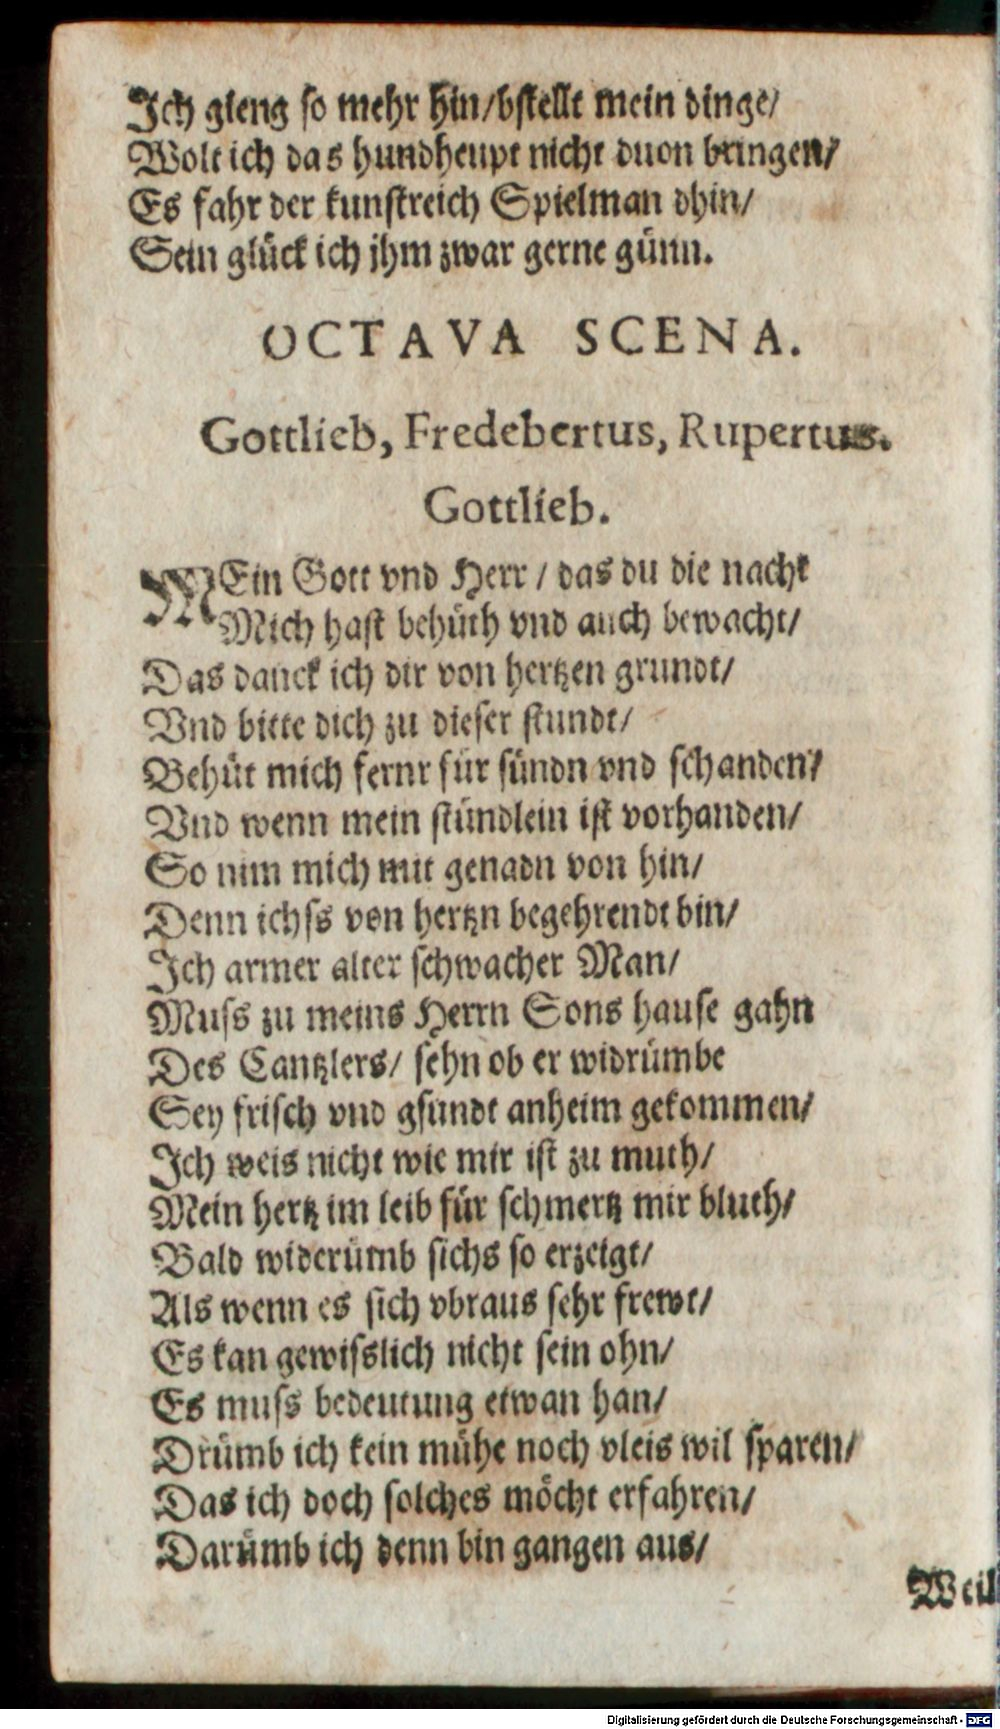 Ich gieng so mehr hin/bstellt mein dinge/
Wolt ich das hundheupt nicht duon bringen/
Es fahr der kunstreich Spielman dhin/
Sein glück ich jhm zwar gerne günn.
OCTAVA SCENA.
Gottlieb, Fredebertus, Rupertus.
Gottlieb.
MEin Gott vnd Herr / das du die nacht
Mich hast behüth vnd auch bewacht/
Das danck ich dir von hertzen grundt/
Vnd bitte dich zu dieser stundt/
Behüt mich fernr für sündn vnd schanden/
Vnd wenn mein stündlein ist vorhanden/
So nim mich mit genadn von hin/
Denn ichss von hertzn begehrendt bin/
Ich armer alter schwacher Man/
Muss zu meins Herrn Sons hause gahn
Des Cantzlers/ sehn ob er widrümbe
Sey frisch vnd gsundt anheim gekommen/
Ich weis nicht wie mir ist zu muth/
Mein hertz im leib für schmertz mir bluth/
Bald widerümb sichs so erzeigt/
Als wenn es sich vbraus sehr frewt/
Es kan gewisslich nicht sein ohn/
Es muss bedeutung etwan han/
Drümb ich kein mühe noch vleis wil sparen/
Das ich doch solches möcht erfahren/
Darümb ich denn bin gangen aus/
Weil
Digitalisierung gefördert durch die Deutsche Forschungsgemeinschaft - DFG